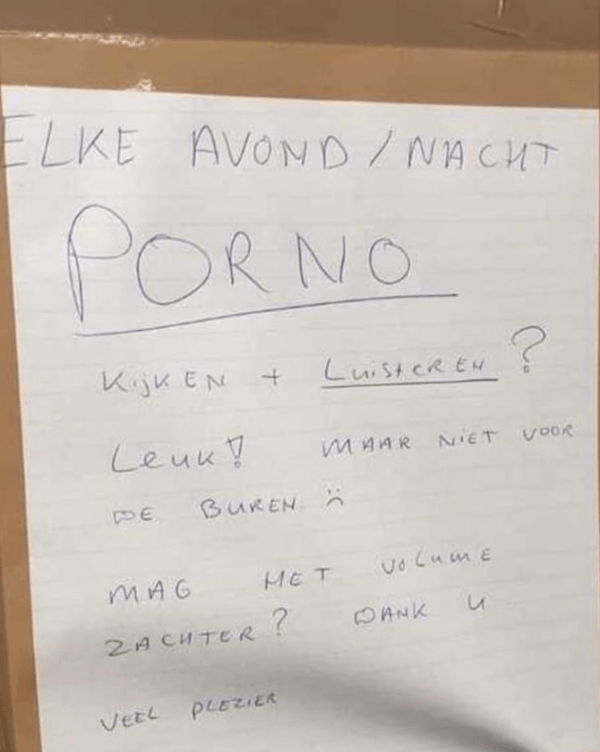 ELKE AVOND / NACHT
PORNO
KijKEN + LuiSTEREN ?
Leuk! MAAR NiET VOOR
DE BUREN ☹
MAG HET VOLUME
ZACHTER? DANK U
VEEL PLEZIER